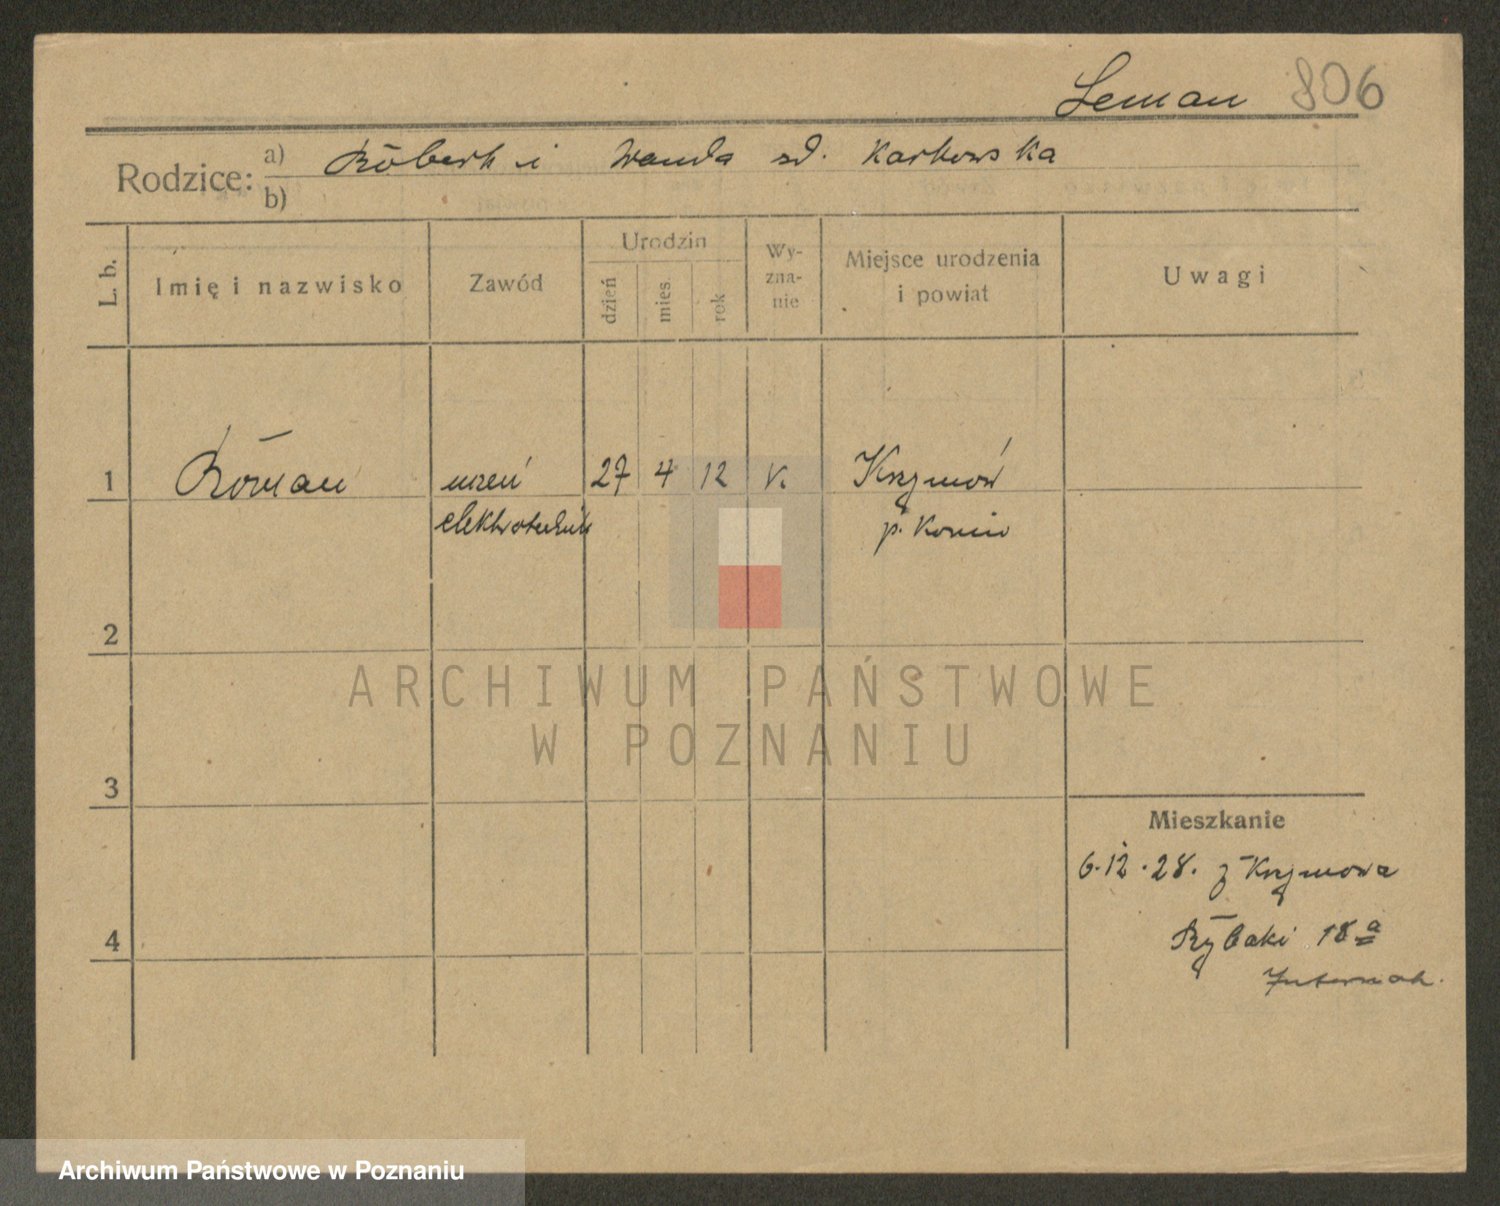 Leman 806
Rodzice: a) Robert i Wanda zd. Karkowska
b)
L. b.
Imię i nazwisko
Zawód
Urodzin
dzień
mies.
rok
Wy-
zna-
nie
Miejsce urodzenia
i powiat
Uwagi
1 Roman uczeń 27 4 12 k. Krzymów
elektrotechnik p. Konin
2
ARCHIWUM PAŃSTWOWE
W POZNANIU
3
Mieszkanie
6.12.28. z Krzymowa
4
Rybaki 18a
Internat.
Archiwum Państwowe w Poznaniu